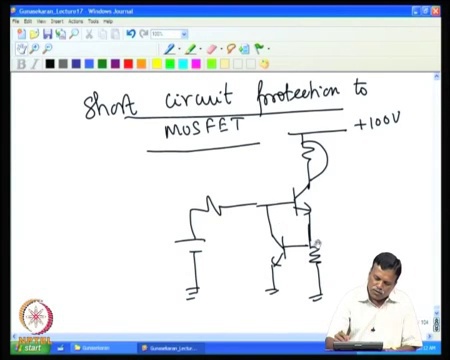 Gunasekaran_Lecture17 - Windows Journal
File Edit View Insert Actions Tools Help
100%
B I
Short circuit protection to
MOSFET
+100V
NPTEL
start
Gunasekaran
Gunasekaran_Lectur...